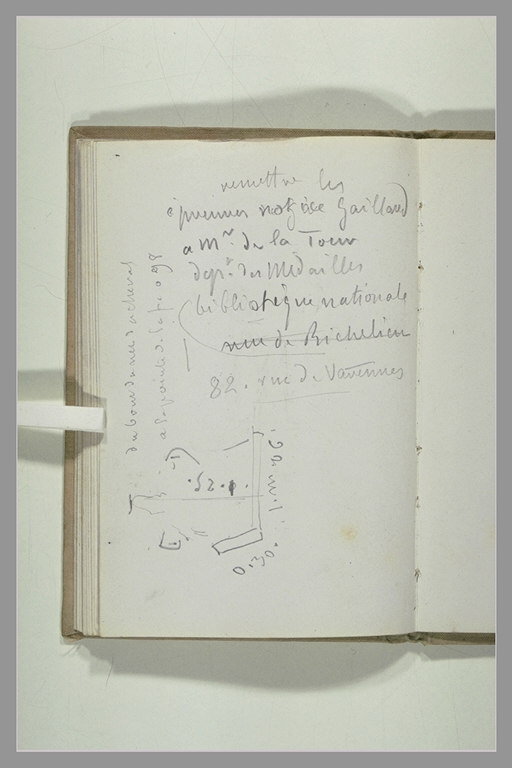 remettre les
épreuves notice Gaillard
a Mr. de la Tour
dept. des Médailles
bibliothèque nationale
rue de Richelieu
82. rue de Varennes
du bout du nez d'acheval
a la pointe de la fe 0 98
1.52.
22 mil
0.30.